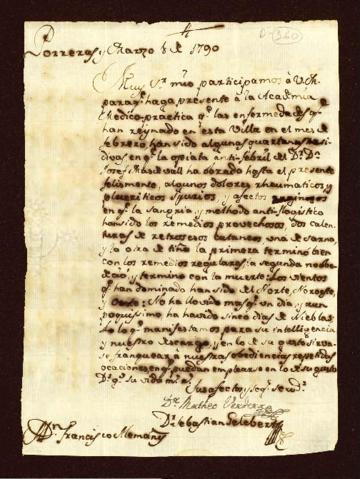 Porreras y Marzo 1 de 1790
Muy Sr mio participamos à Vm
para q haga presente à la Academia
Medico-practica q las enfermedades q
han reynado en esta Villa en el mes de
febrero han sido algunas quartanas
en q la opiata anti-febril del Dr Dn
Josef Masdevall ha obrado hasta el presente
felismente, algunos dolores rheumaticos y
pleuriticos spurios, y afectos
en q la sangria y methodo anti-flogistico
han sido los remedios provechosos, dos calen
turas de retroceso cutaneo una de sarna,
y la otra de tiña la primera termino bien
con los remedios regulares, la segunda no obe
decio y termino con la muerte: Los vientos
q han dominado han sido el Norte, Noroeste
y Oeste: No ha llovido mas q un dia y aun
poquissimo, ha havido cinco dias de Nieblas
lo q manifestamos para su intelligencia
y nuestro descargo, y en lo de su gusto sirva
se franquear à nuestra obediencia repetidas
ocaciones en q puedan emplearse en lo de su gusto
Dr Matheo Verdera
Dr Sebastian
Dr Francisco Llemany